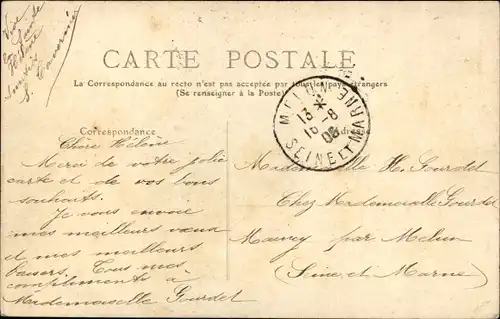 Vive
Sainte
Hélène
CARTE POSTALE
La Correspondance au recto n'est pas acceptée par tous les pays étrangers
(Se renseigner à la Poste)
MELUN
13
16-8
08
SEINE ET MARNE
Correspondance
Adresse
Chère Hélène
Merci de votre jolie
carte et de vos bons
souhaits.
Je vous envoie
mes meilleurs vœux
et mes meilleurs
baisers. Tous mes
compliments à
Mademoiselle Gourdet
Mademoiselle H. Gourdet
Chez Mademoiselle Gourdet
Maincy par Melun
(Seine et Marne)